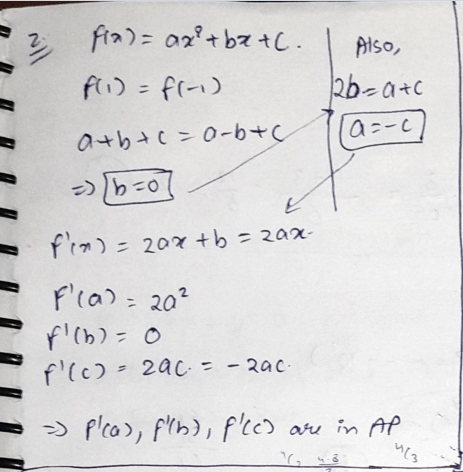 2.
f(x) = ax²+bx+c.
f(1) = f(-1)
a+b+c = a-b+c
=> b=0
Also,
2b=a+c
a=-c
f'(x) = 2ax+b = 2ax.
f'(a) = 2a²
f'(b) = 0
f'(c) = 2ac. = -2ac.
=> f'(a), f'(b), f'(c) are in AP